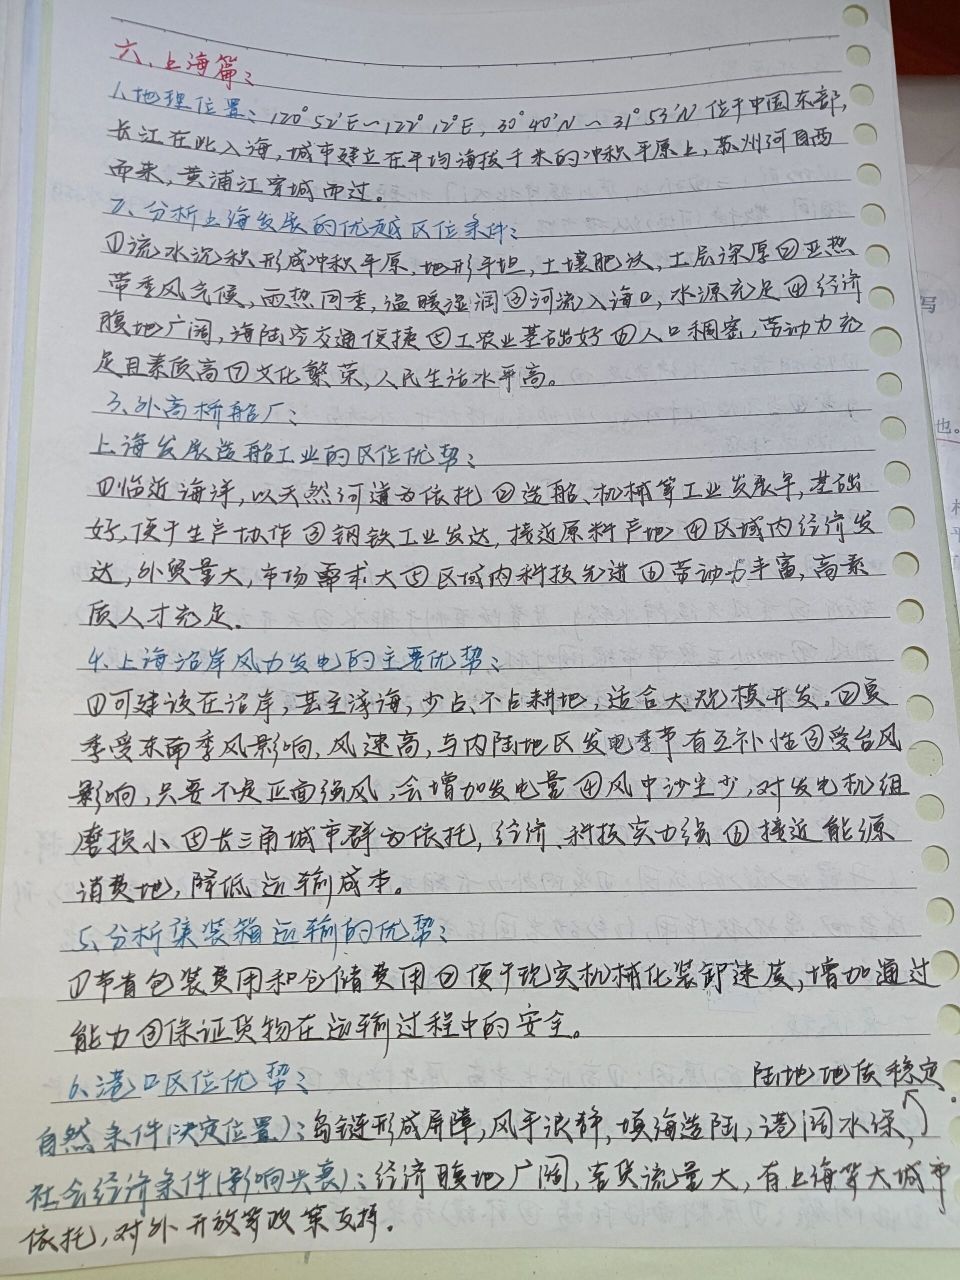 六、上海篇：
1、地理位置：120°52′E~122°12′E，30°40′N~31°53′N 位于中国东部，
长江在此入海，城市建立在平均海拔千米的冲积平原上，苏州河自西
而来，黄浦江穿城而过。
2、分析上海发展的优越区位条件：
①流水沉积形成冲积平原，地形平坦，土壤肥沃，土层深厚②亚热
带季风气候，雨热同季，温暖湿润③河流入海口，水源充足④经济
腹地广阔，海陆空交通便捷⑤工农业基础好⑥人口稠密，劳动力充
足且素质高⑦文化繁荣，人民生活水平高。
3、外高桥船厂：
上海发展造船工业的区位优势：
①临近海洋，以天然河道为依托②造船、机械等工业发展早，基础
好，便于生产协作③钢铁工业发达，接近原料产地④区域内经济发
达，外贸量大，市场需求大⑤区域内科技先进⑥劳动力丰富，高素
质人才充足.
4、上海沿岸风力发电的主要优势：
①可建设在沿岸，甚至浅海，少占、不占耕地，适合大规模开发。②夏
季受东南季风影响，风速高，与内陆地区发电季节有互补性③受台风
影响，只要不是正面强风，会增加发电量④风中沙尘少，对发电机组
磨损小⑤长三角城市群为依托，经济、科技实力强⑥接近能源
消费地，降低运输成本。
5、分析集装箱运输的优势：
①节省包装费用和仓储费用②便于现实机械化装卸速度，增加通过
能力③保证货物在运输过程中的安全。
6、港口区位优势：
陆地地质稳定.
自然条件(决定位置)：岛链形成屏障，风平浪静，填海造陆，港阔水深，
社会经济条件(影响兴衰)：经济腹地广阔，客货流量大，有上海等大城市
依托，对外开放等政策支持.
写
也。